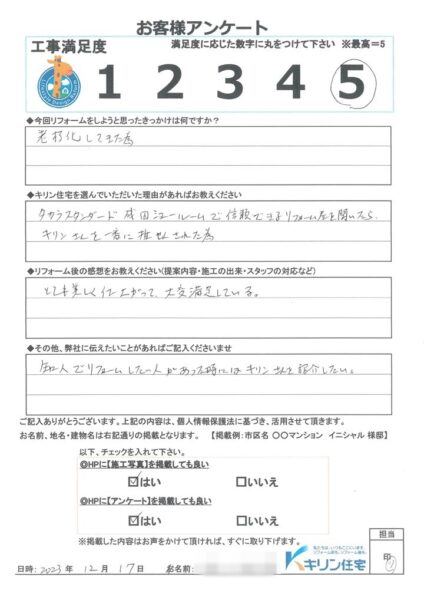 お客様アンケート
工事満足度
満足度に応じた数字に丸をつけて下さい ※最高=5
1 2 3 4 5
◆今回リフォームをしようと思ったきっかけは何ですか?
老朽化してきた為
◆キリン住宅を選んでいただいた理由があればお教えください
タカラスタンダード成田ショールームで信頼できるリフォーム店を聞いたら、
キリンさんを一番に推された為
◆リフォーム後の感想をお教えください(提案内容・施工の出来・スタッフの対応など)
とても美しく仕上がって、大変満足している。
◆その他、弊社に伝えたいことがあればご記入くださいませ
知人でリフォームしたい人があった時にはキリンさんを紹介したい。
ご記入ありがとうございます。上記の内容は、個人情報保護法に基づき、活用させて頂きます。
お名前、地名・建物名は右記通りの掲載となります。 【掲載例:市区名 〇〇マンション イニシャル 様邸】
以下、チェックを入れて下さい。
◎HPに【施工写真】を掲載しても良い
☑はい □いいえ
◎HPに【アンケート】を掲載しても良い
☑はい □いいえ
※掲載した内容はお声をかけて頂ければ、すぐに取り下げます。
担当
印
キリン住宅
日時:2023年 12月 17日 お名前: